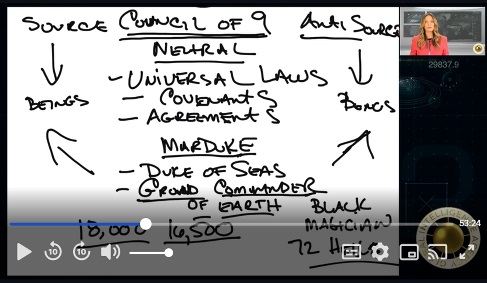 SOURCE COUNCIL OF 9 ANTI SOURCE
NEUTRAL
29837.9
- UNIVERSAL LAWS
BEINGS - COVENANTS BEINGS
- AGREEMENTS
MARDUKE
- DUKE OF SEAS
- GRAND COMMANDER
OF EARTH BLACK
18,000 16,500 MAGICIAN
53:24
72
10 10